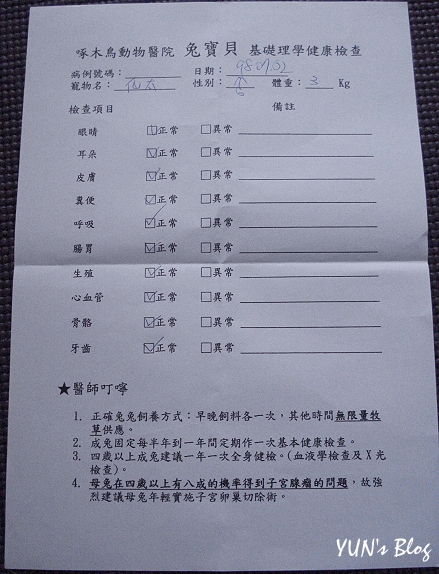 啄木鳥動物醫院 兔寶貝 基礎理學健康檢查
病例號碼: 日期:
寵物名: 性別: 體重: 3 Kg
檢查項目 備註
眼睛 正常 異常
耳朵 正常 異常
皮膚 正常 異常
糞便 正常 異常
呼吸 正常 異常
腸胃 正常 異常
生殖 正常 異常
心血管 正常 異常
骨骼 正常 異常
牙齒 正常 異常
★醫師叮嚀
1. 正確兔兔飼養方式:早晚飼料各一次,其他時間無限量牧
草供應。
2. 成兔固定每半年到一年間定期作一次基本健康檢查。
3. 四歲以上成兔建議一年一次全身健檢。(血液學檢查及X光
檢查)。
4. 母兔在四歲以上有八成的機率得到子宮腺瘤的問題,故強
烈建議母兔年輕實施子宮卵巢切除術。
YUN's Blog